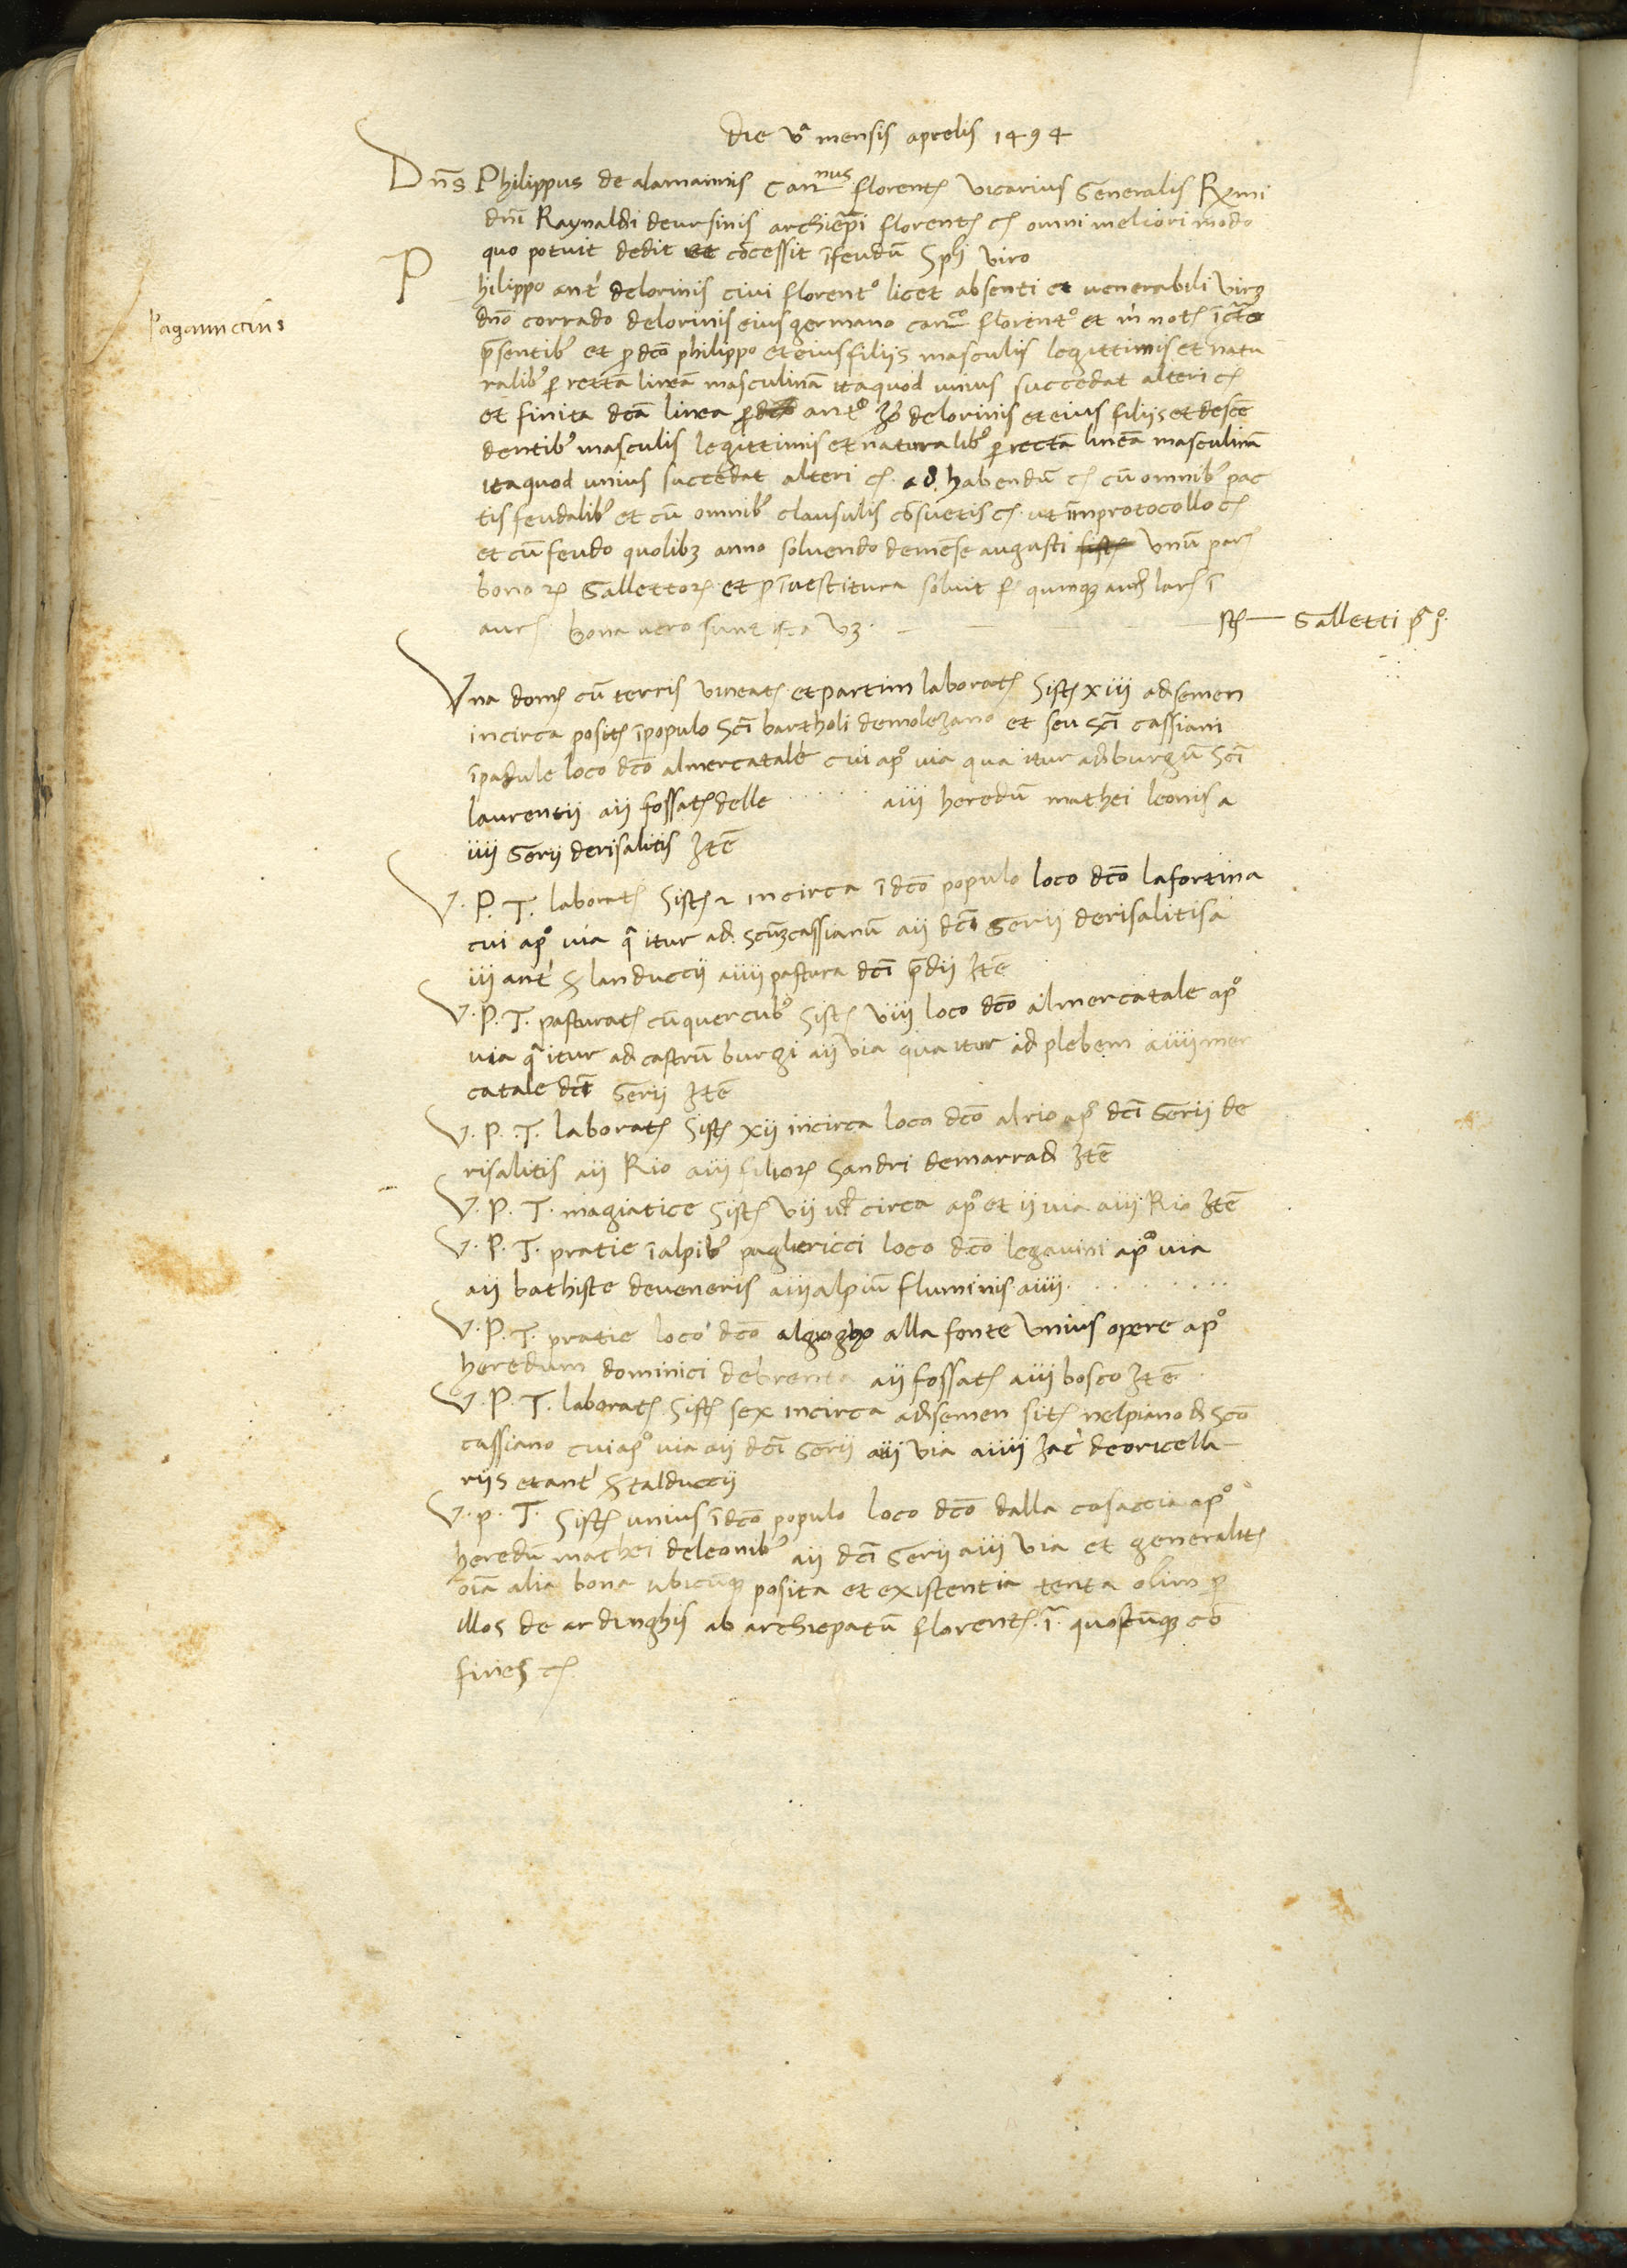 die vª mensis aprelis 1494
Dn̄s Philippus de alamannis Can^nus florent̄ Vicarius Generalis R̄mi
dn̄i Raynaldi de ursinis archiep̄i florent̄ c̄ omni meliori modo
quo potuit dedit et cōcessit ī feudū Sp̄li viro
Philippo ant' de lorinis civi florent° licet absenti et venerabili viro
Paganuccius
dn̄o corrado de lorinis eius germano can^co florent° et m' not̄
p̄sentib' et p dc̄o philippo et eius filiis masculis legittimis et natu
ralib' p rettā lineā masculinā ita quod unius succedat alteri c̄
et finita dc̄a linea p ant° de lorinis et eius filiis et descē
dentib' masculis legittimis et naturalib' p rectā lineā masculinā
ita quod unius succedat alteri c̄ ad habendū c̄ cū omnib' pac
tis feudalib' et cū omnib' clausulis cōsuetis c̄ ut in protocollo c̄
et cū feudo quolib3 anno solvendo de mēse augusti unū par̄
bonor̄ Gallettor̄ et p īvestitura solvit quinq3 lar̄ ī
aur̄ bona vero sunt ista v3
Galletti p° j°
Una dom̄ cū terris vineat̄ et partim laborat̄ Sist̄ xiii ad semen
incirca posit̄ ī populo Sc̄i bartholi de molezano et seu Sc̄i cassiani
ī padule loco dc̄o al mercatale cui ap° via qua itur ad burgū Sc̄i
laurentij aij fossat̄ delle . . . . . aiij heredū mathei leonis a
iiij Gerij de risalitis Itē
V. P. T. laborat̄ Sist̄ 2 incirca ī dc̄o populo loco dc̄o la fortina
cui ap° via q̄ itur ad scūm cassianū aij dc̄i Gerij de risalitis a
iij ant' S landuccij aiiij pastura dc̄i p̄dij Itē
V. P. T. pasturat̄ cū quercub' Sist̄ viij loco dc̄o al mercatale ap°
via q̄ itur ad castrū burgi aij via qua itur ad plebem aiiij mer
catale dc̄i Gerij Itē
V. P. T. laborat̄ Sist̄ xij incirca loco dc̄o al rio ap° dc̄i Gerij de
risalitis aij Rio aiij filior̄ Sandri de marradi Itē
V. P. T. magiatice Sist̄ vij vl circa ap° et ij via aiij Rio Itē
V. P. T. pratie ī alpib' pagliericci loco dc̄o legavini ap° via
aij bathiste de veneris aiij alpiū fluminis aiiij . . . . . . . .
V. P. T. pratie loco dc̄o alla fonte unius opere ap°
heredum dominici de brenta aij fossat̄ aiij bosco Itē
V. P. T. laborat̄ Sist̄ sex incirca ad semen sit̄ nel piano d Sc̄o
cassiano cui ap° via aij dc̄i Gerij aiij via aiiij Iac' de oricella
riis et ant' S talduccij
V. P. T. Sist̄ unius ī dc̄o populo loco dc̄o dalla casaccia ap°
heredū mathei de leonib' aij dc̄i Gerij aiij via et generalit̄
oīa alia bona ubicūq3 posita et existentia tenta olim p
illos de ardinghis ab archiepatū florent̄ ī quoscūq3 cō
fines c̄